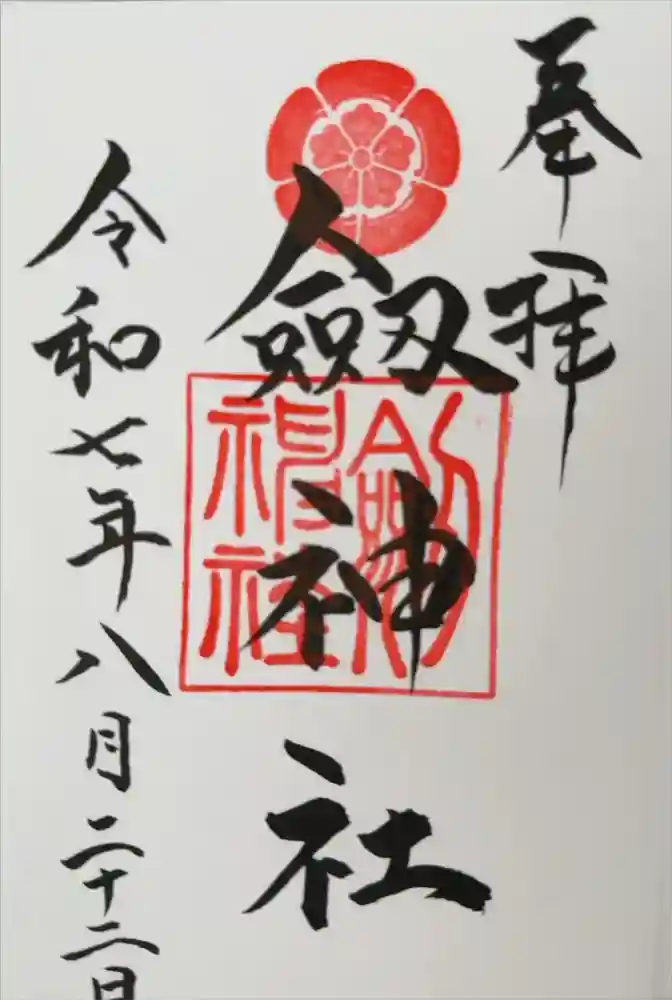 奉拝
劔神社
劔神社
令和七年八月二十二日